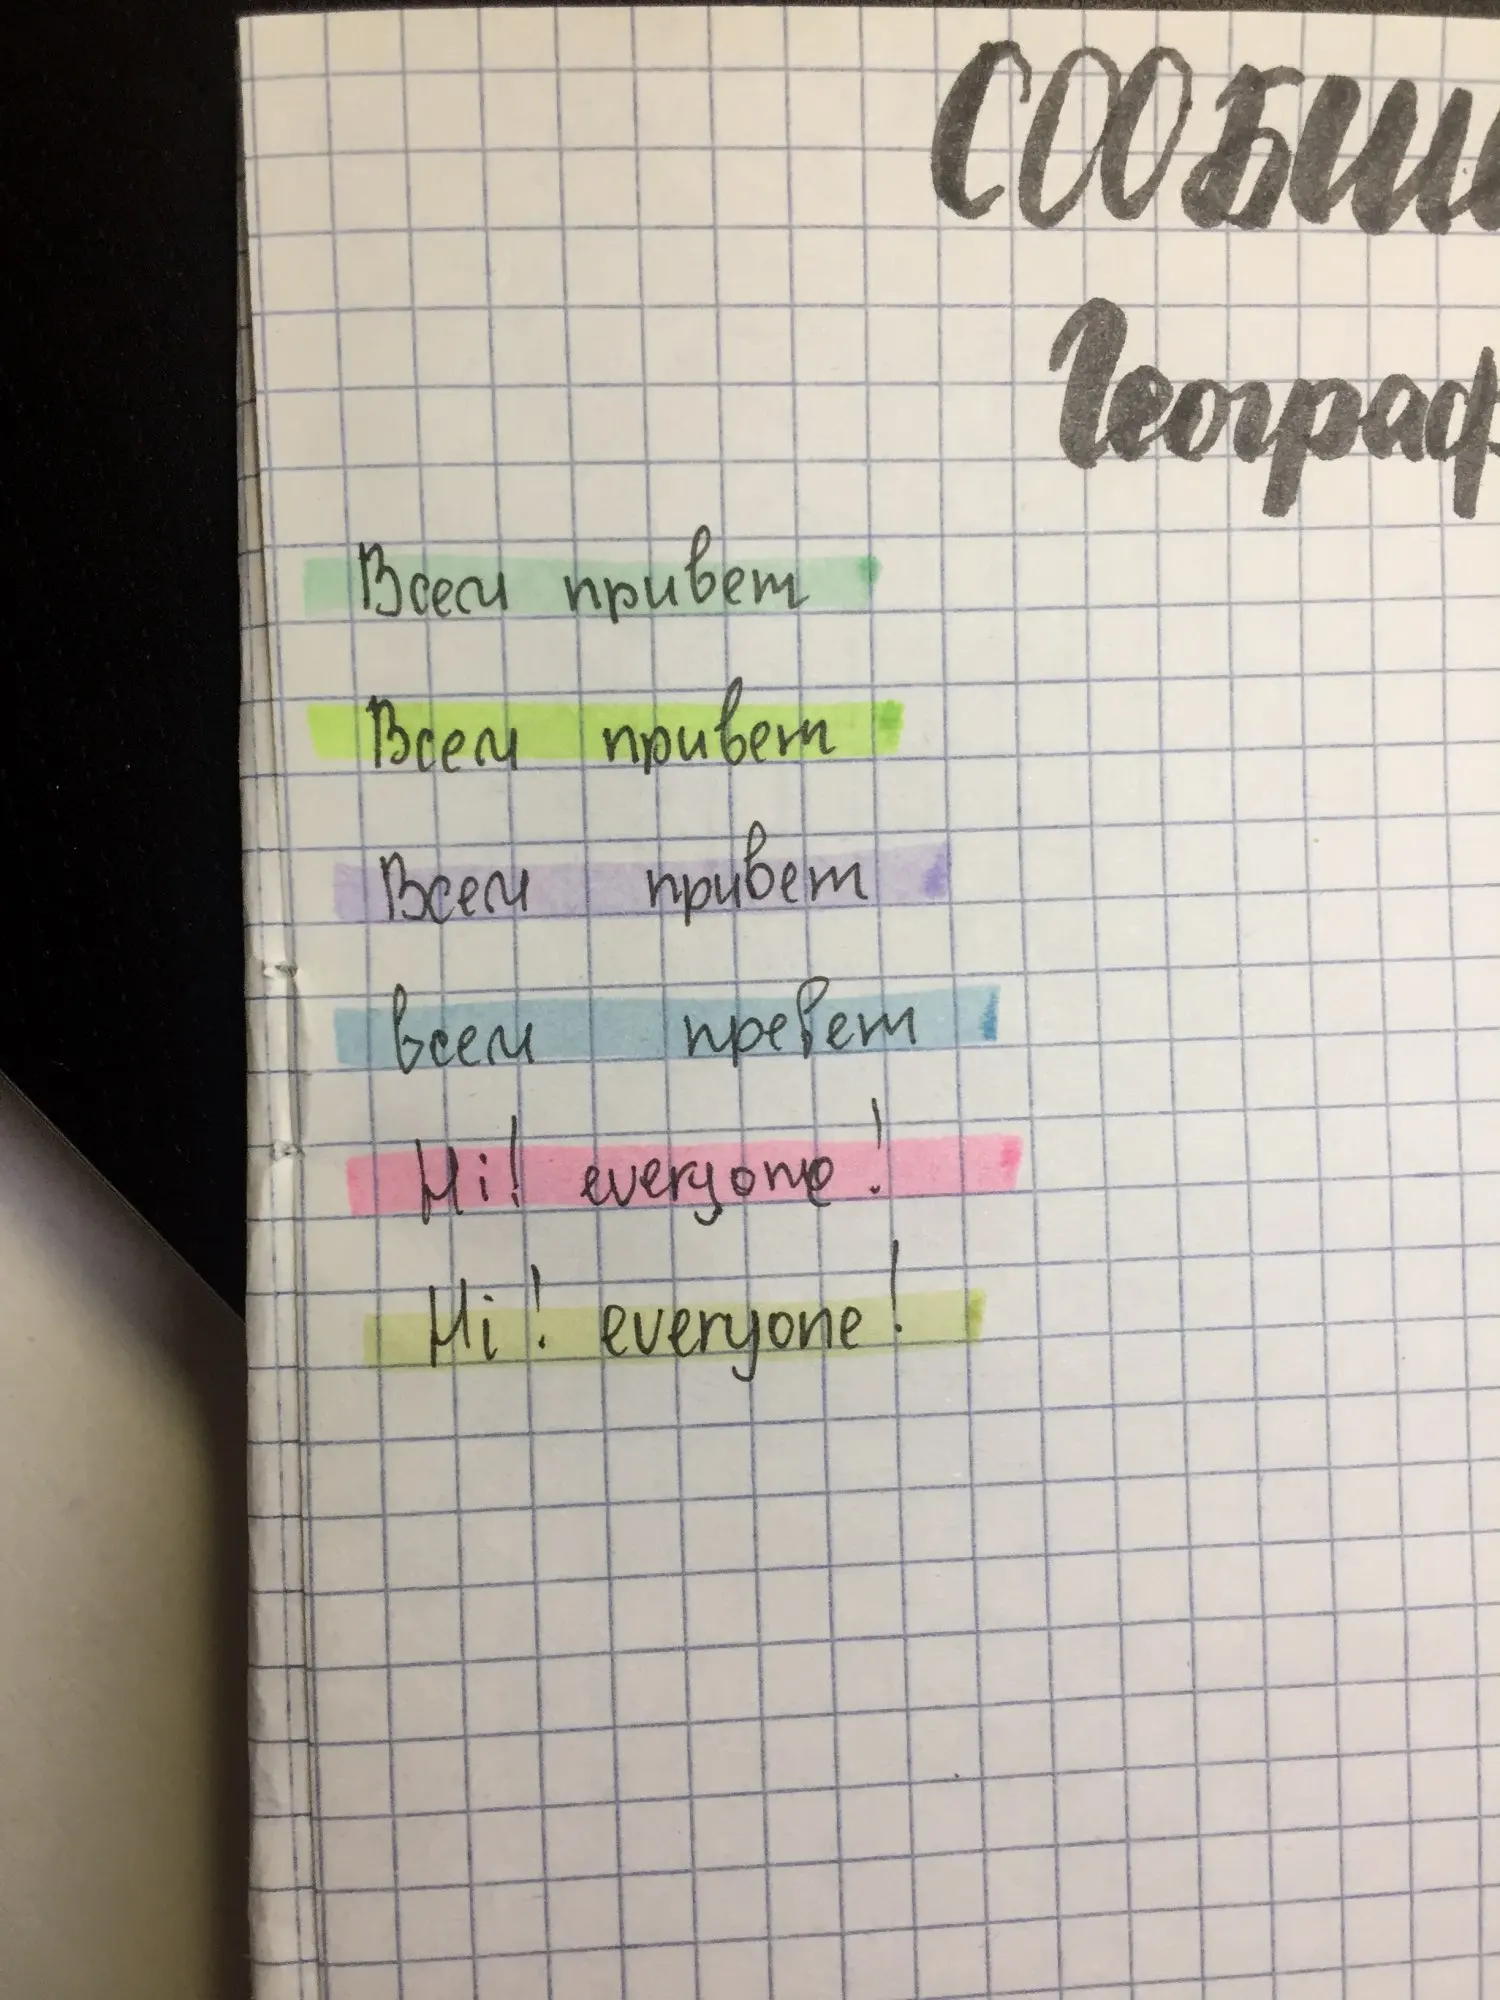 СООБЩ
Географ
Всем привет
Всем привет
Всем привет
всем превет
Hi! everyone!
Hi! everyone!